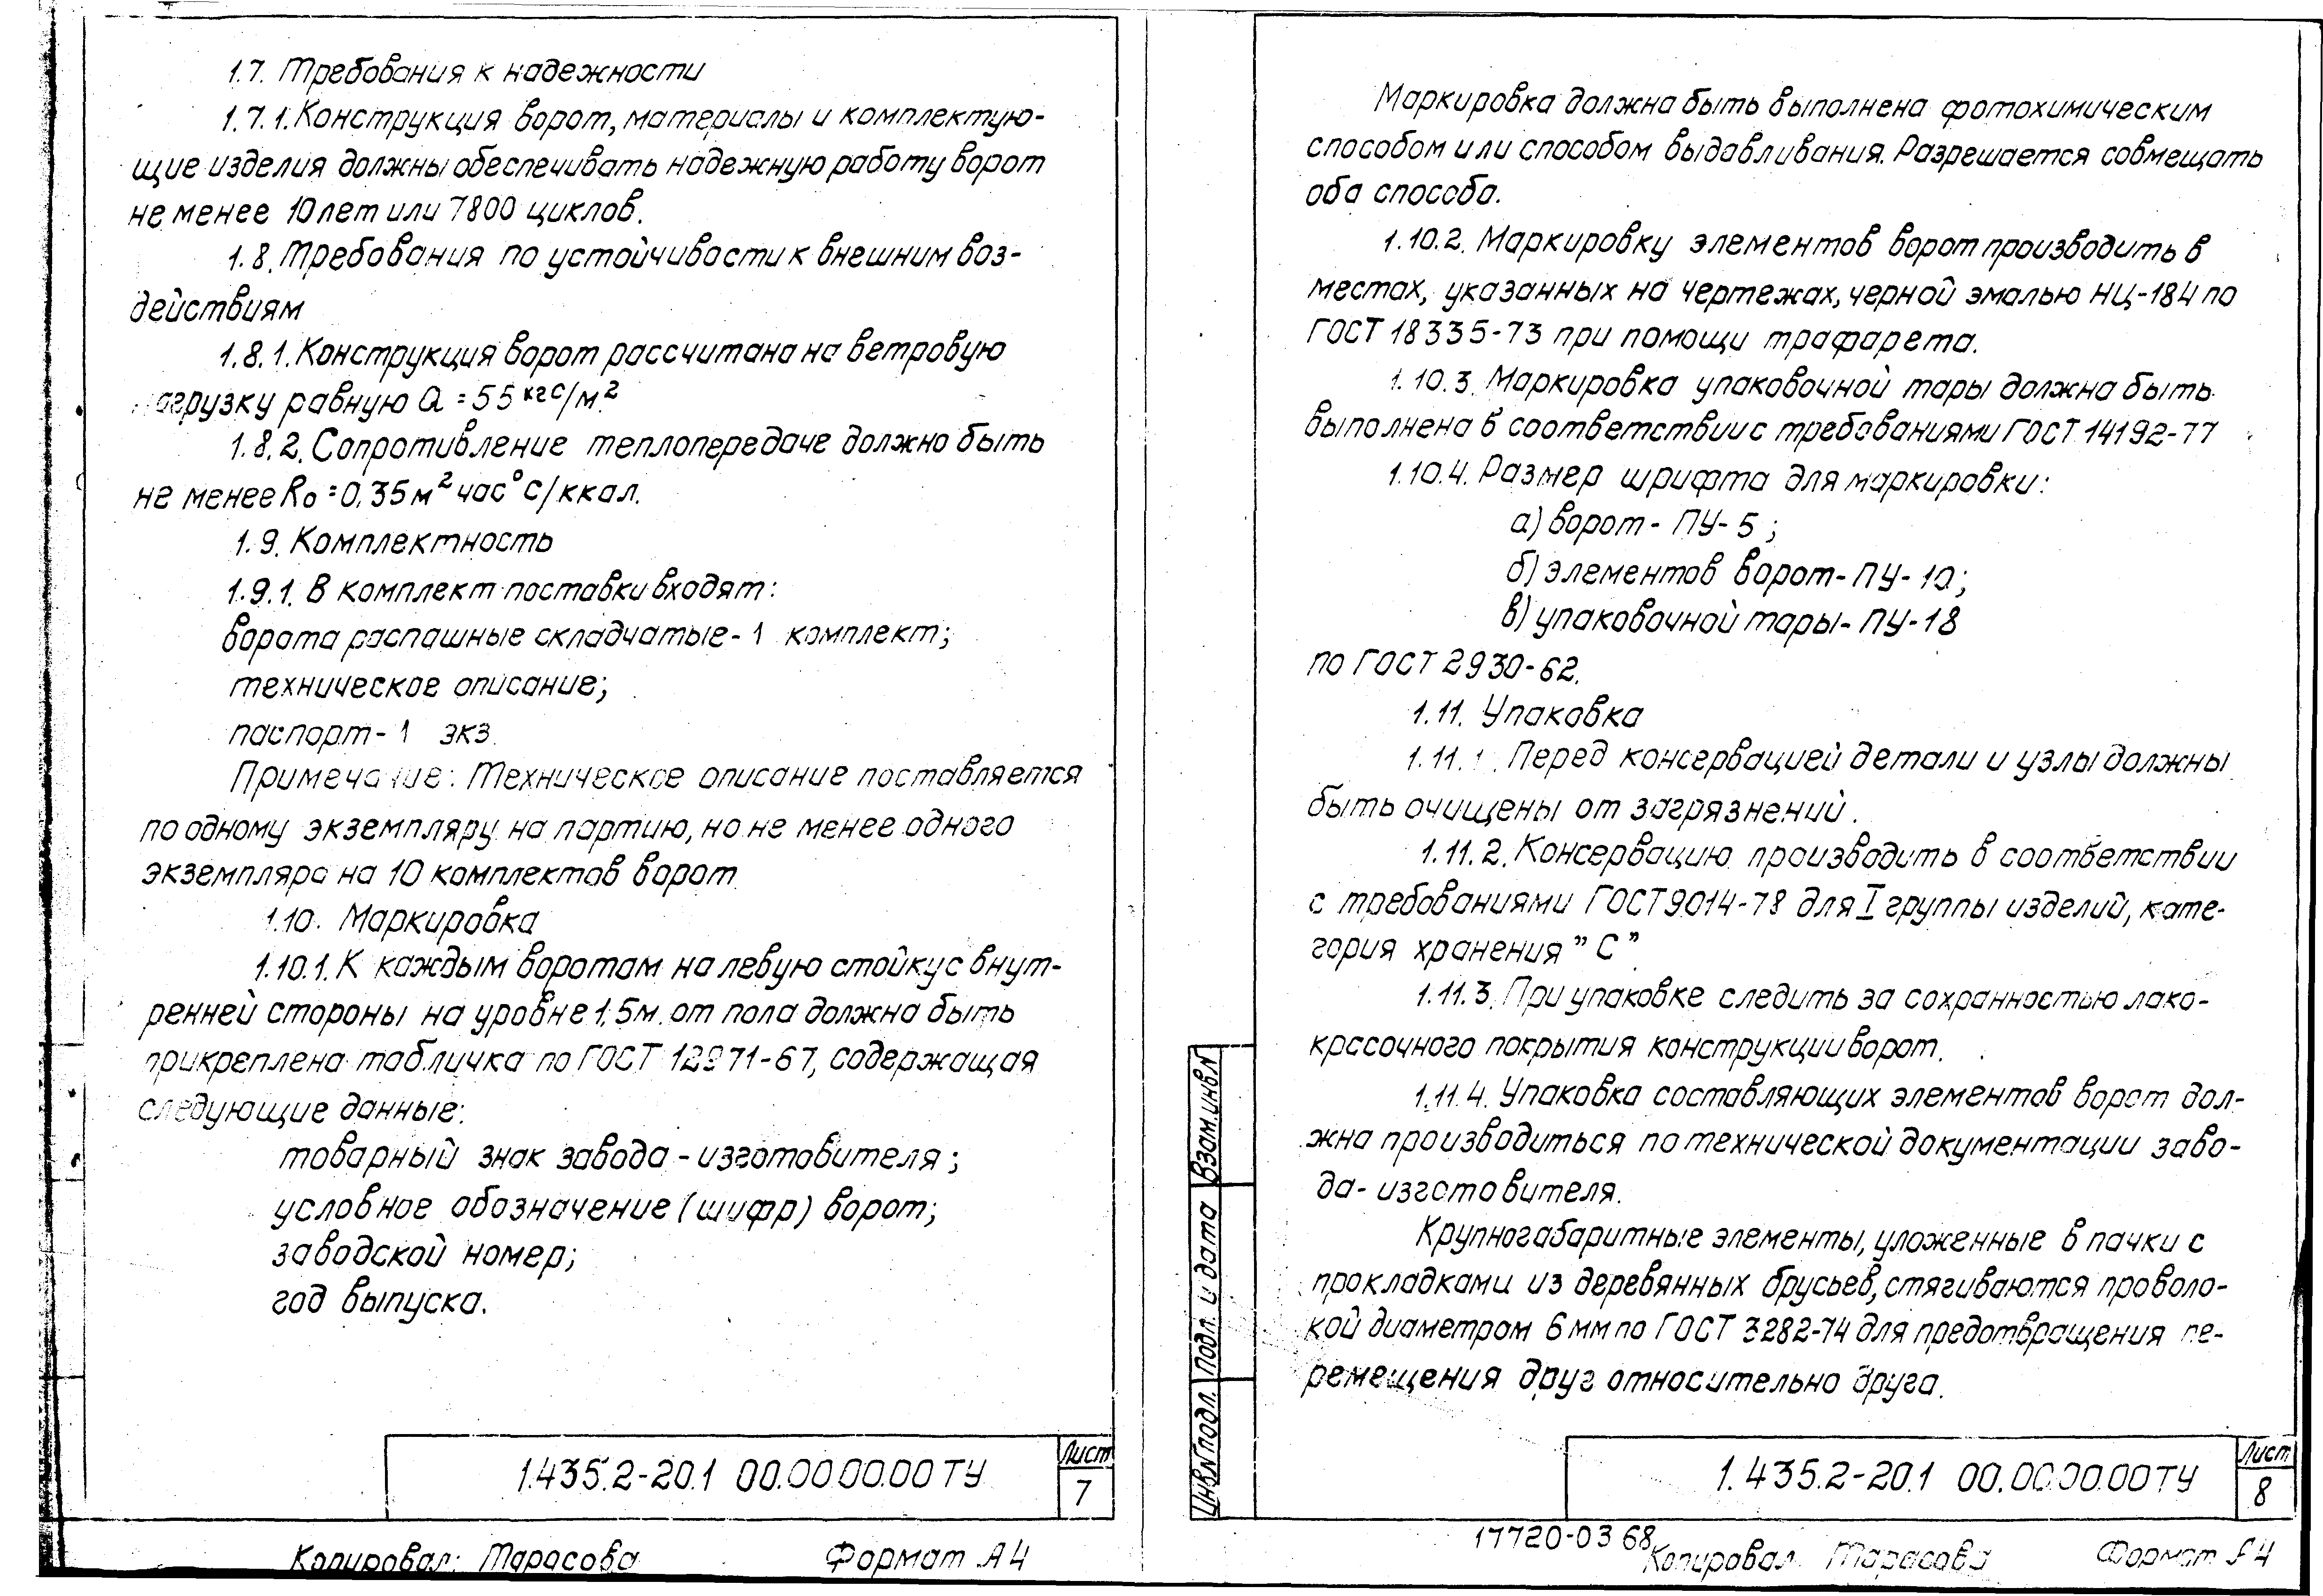 1.7. Требования к надежности
1.7.1. Конструкция ворот, материалы и комплектую-
щие изделия должны обеспечивать надежную работу ворот
не менее 10 лет или 7800 циклов.
1.8. Требования по устойчивости к внешним воз-
действиям
1.8.1. Конструкция ворот рассчитана на ветровую
нагрузку равную Q = 55 кгс/м²
1.8.2. Сопротивление теплопередаче должно быть
не менее Rо = 0,35 м² час°С/ккал.
1.9. Комплектность
1.9.1. В комплект поставки входят:
ворота распашные складчатые - 1 комплект;
техническое описание;
паспорт - 1 экз.
Примечание: Техническое описание поставляется
по одному экземпляру на партию, но не менее одного
экземпляра на 10 комплектов ворот
1.10. Маркировка
1.10.1. К каждым воротам на левую стойку с внут-
ренней стороны на уровне 1,5м. от пола должна быть
прикреплена табличка по ГОСТ 12971-67, содержащая
следующие данные:
товарный знак завода - изготовителя;
условное обозначение (шифр) ворот;
заводской номер;
год выпуска.
1.435.2-20.1 00.00.00.00 ТУ
Лист
7
Копировал: Тарасова
Формат А4
Маркировка должна быть выполнена фотохимическим
способом или способом выдавливания. Разрешается совмещать
оба способа.
1.10.2. Маркировку элементов ворот производить в
местах, указанных на чертежах, черной эмалью НЦ-184 по
ГОСТ 18335-73 при помощи трафарета.
1.10.3. Маркировка упаковочной тары должна быть
выполнена в соответствии с требованиями ГОСТ 14192-77
1.10.4. Размер шрифта для маркировки:
а) ворот - ПУ-5;
б) элементов ворот - ПУ-10;
в) упаковочной тары - ПУ-18
по ГОСТ 2930-62.
1.11. Упаковка
1.11.1. Перед консервацией детали и узлы должны
быть очищены от загрязнений.
1.11.2. Консервацию производить в соответствии
с требованиями ГОСТ 9.014-78 для I группы изделий, кате-
гория хранения "С".
1.11.3. При упаковке следить за сохранностью лако-
красочного покрытия конструкции ворот.
1.11.4. Упаковка составляющих элементов ворот дол-
жна производиться по технической документации заво-
да - изготовителя.
Крупногабаритные элементы, уложенные в пачки с
прокладками из деревянных брусьев, стягиваются проволо-
кой диаметром 6 мм по ГОСТ 3282-74 для предотвращения пе-
ремещения друг относительно друга.
Взам. инв N
Подп. и дата
Инв N подл.
1.435.2-20.1 00.00.00.00 ТУ
Лист
8
17720-03 68
Копировал Тарасова
Формат А4